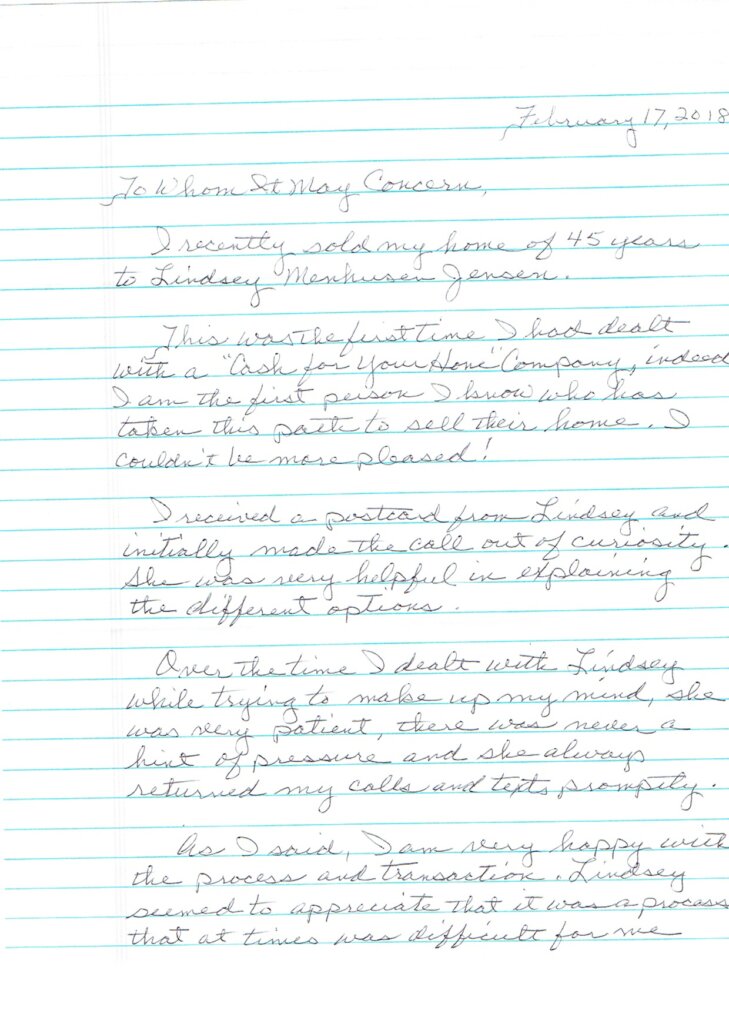 February 17, 2018
To Whom It May Concern,
I recently sold my home of 45 years
to Lindsey Menhusen Jensen.
This was the first time I had dealt
with a "Cash for Your Home" Company, indeed
I am the first person I know who has
taken this path to sell their home. I
couldn't be more pleased!
I received a postcard from Lindsey and
initially made the call out of curiosity.
She was very helpful in explaining
the different options.
Over the time I dealt with Lindsey
while trying to make up my mind, she
was very patient, there was never a
hint of pressure and she always
returned my calls and texts promptly.
As I said, I am very happy with
the process and transaction. Lindsey
seemed to appreciate that it was a process
that at times was difficult for me